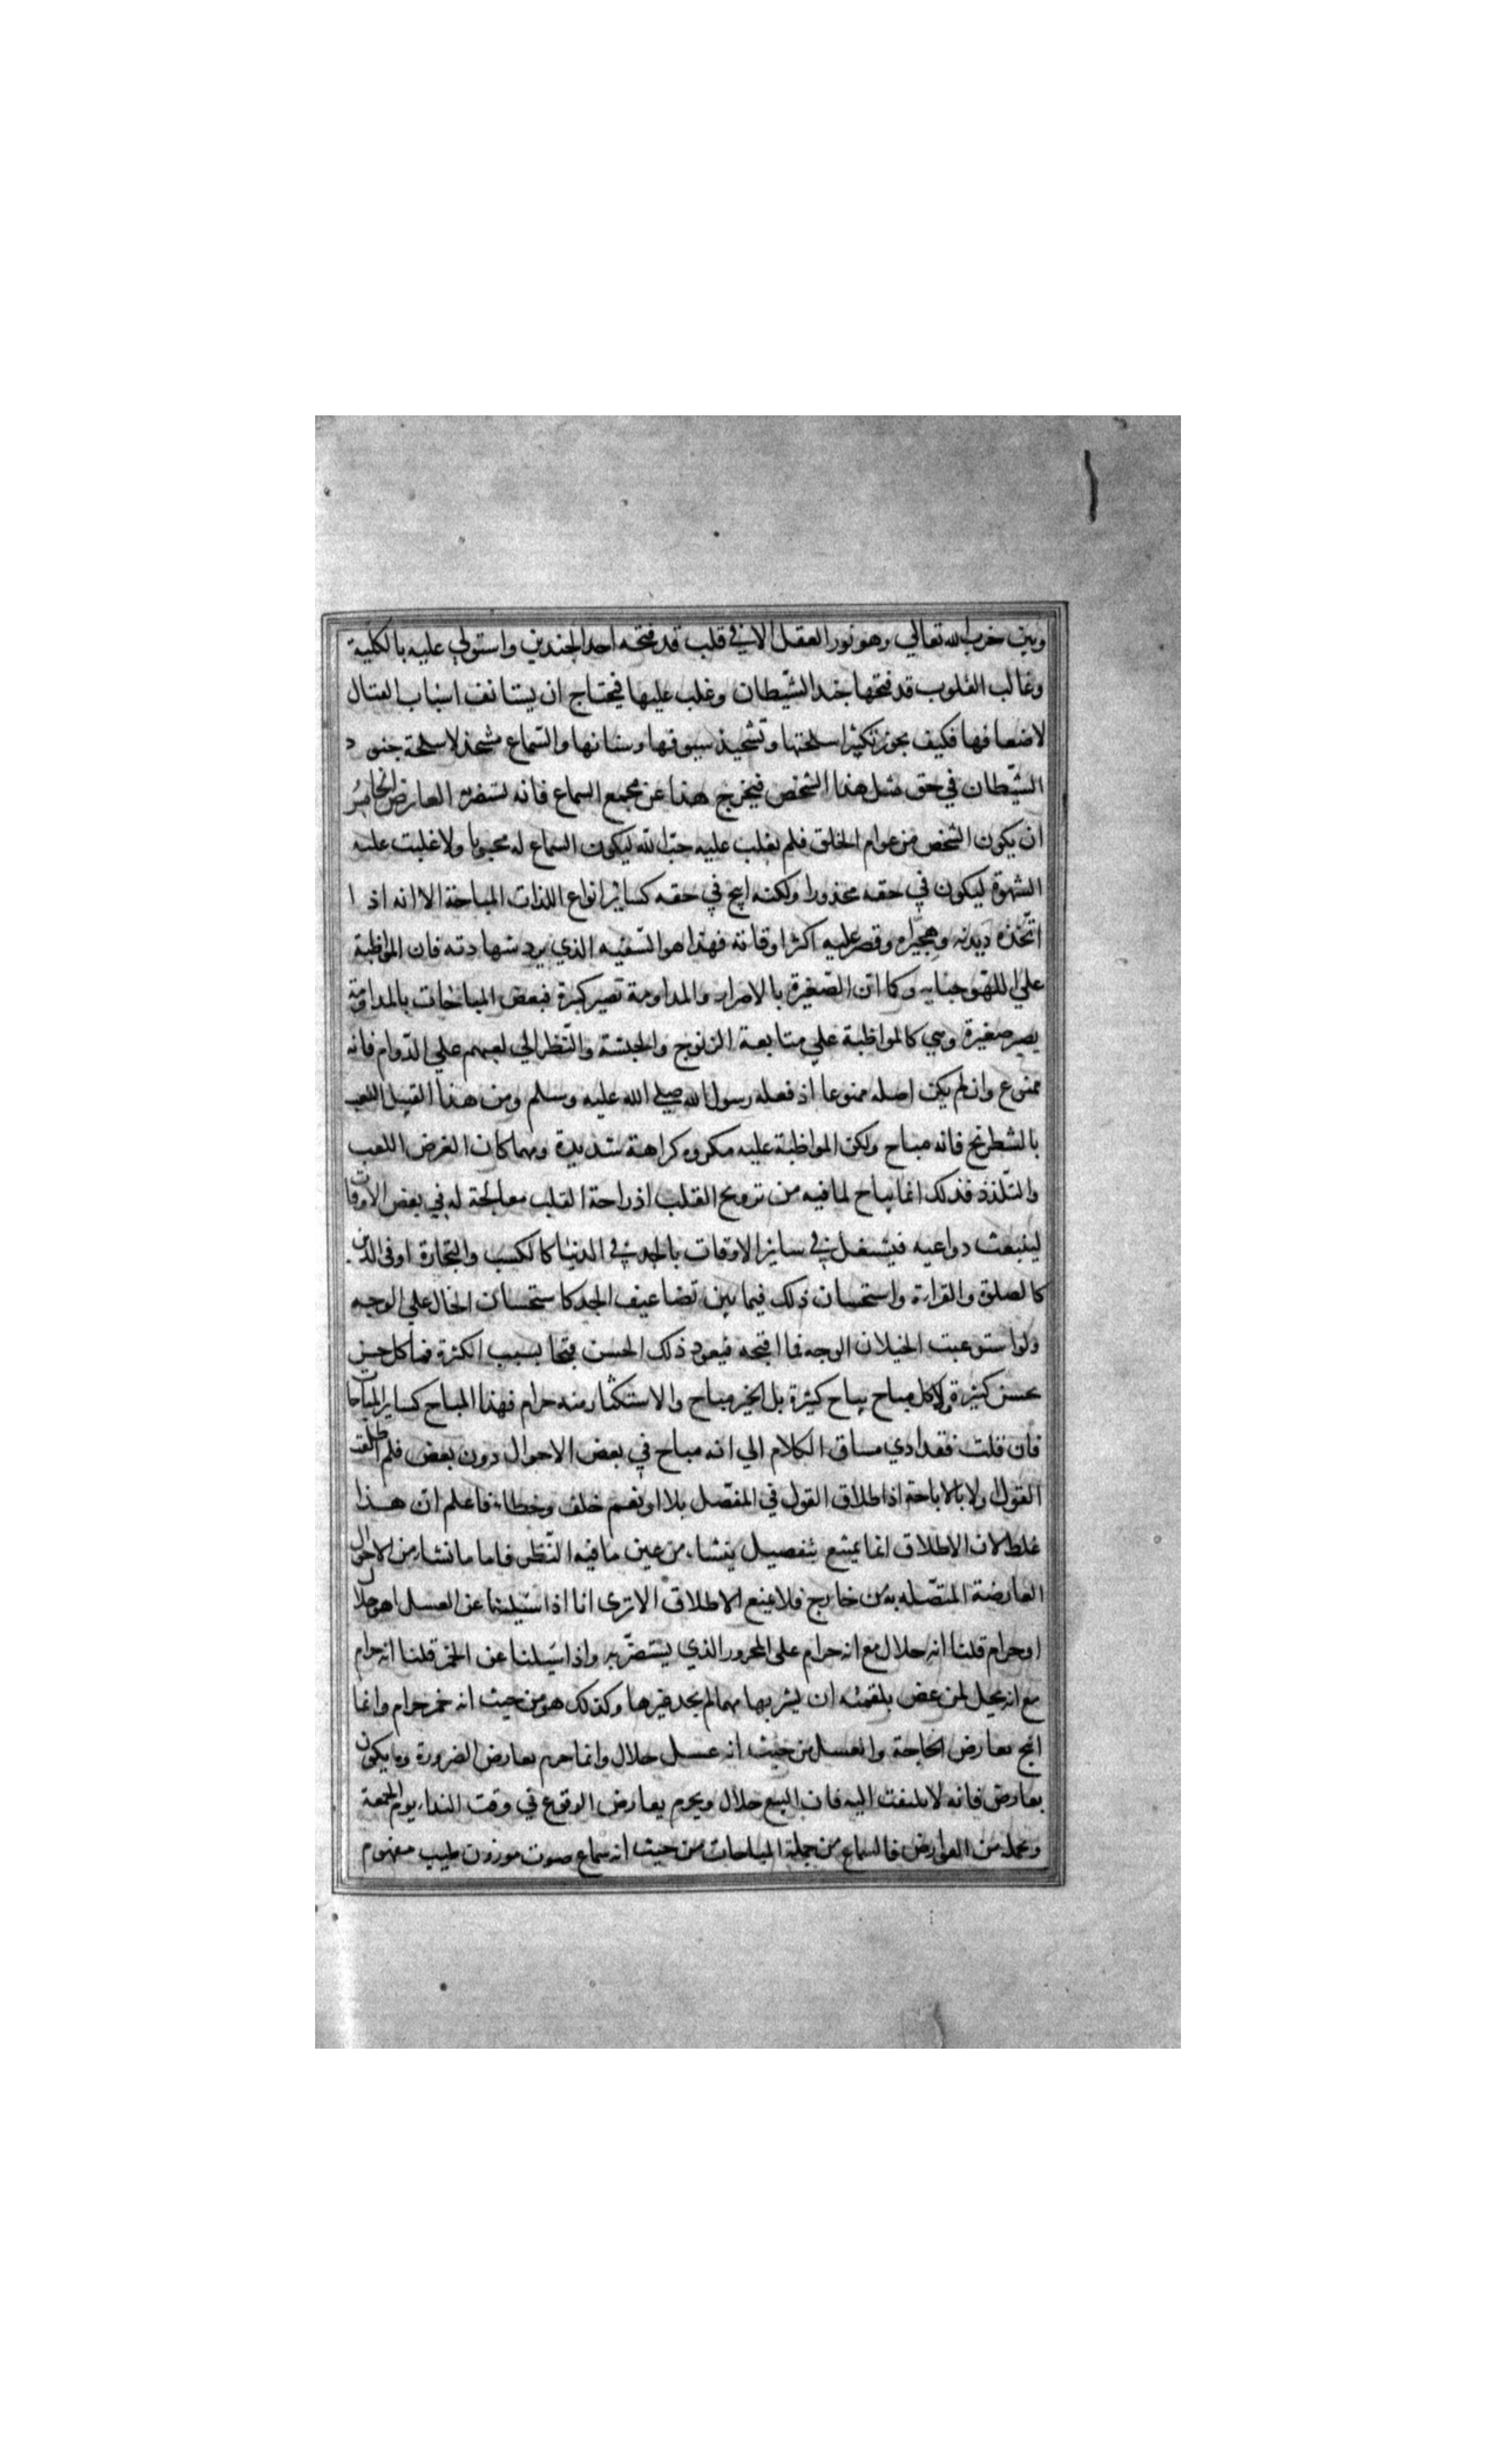 وبين حزب الله تعالي وهو نور العقل الا في قلب قد فتحه احد الجندين واستولي عليه بالكلية
وغالب القلوب قد فتحها جند الشيطان وغلب عليها فيحتاج ان يستانف اسباب القتال
لازعاجها فكيف يجوز تكثير اسلحتها وتشحيذ سيوفها وسنانها والسماع مشحذ لاسلحة جنود
الشيطان في حق مثل هذا الشخص فيخرج هذا عن مجمع السماع فانه يستضر به العارض الخامس
ان يكون الشخص من عوام الخلق فلم يغلب عليه حب الله ليكون السماع له محبوبا ولا غلبت عليه
الشهوة ليكون في حقه محذورا ولكنه ابيح في حقه كساير انواع اللذات المباحة الا انه اذا
اتخذه ديدنه وهجيراه وقصر عليه اكثر اوقاته فهذا هو السفيه الذي يرد شهادته فان المواظبة
علي اللهو جنايه وكما ان الصغيرة بالاصرار والمداومة تصير كبيرة فبعض المباحات بالمداومة
يصير صغيرة وهي كالمواظبة علي متابعة الزنوج والحبشة والنظر الي لعبهم علي الدوام فانه
ممنوع وان لم يكن اصله ممنوعا اذ فعله رسول الله صلي الله عليه وسلم ومن هذا القبيل اللعب
بالشطرنج فانه مباح ولكن المواظبة عليه مكروه كراهة شديدة ومهما كان الغرض اللعب
والتلذذ فذلك انما يباح لما فيه من ترويح القلب اذ راحة القلب معالجة له في بعض الاوقات
لينبعث دواعيه فيشتغل في ساير الاوقات بالجد في الدنيا كالكسب والتجارة او في الدين
كالصلوة والقراءة واستحسان ذلك فيما بين تضاعيف الجد كاستحسان الخال علي الوجه
ولو استوعبت الخيلان الوجه فما اقبحه فيعود ذلك الحسن قبحا بسبب الكثرة فما كل حسن
يحسن كثيرة ولا كل مباح يباح كثيرة بل الخبز مباح والاستكثار منه حرام فهذا المباح كساير المباحات
فان قلت فقد ادي مساق الكلام الي انه مباح في بعض الاحوال دون بعض فلم اطلقت
القول اولا بالاباحة اذ اطلاق القول في المفصل بلا او نعم خلف وخطاء فاعلم ان هذا
غلط لان الاطلاق انما يمتنع بتفصيل ينشاء من عين ما فيه النظر فاما ما نشاء من الاحوال
العارضة المتصله به من خارج فلا يمنع الاطلاق الا تري انا اذا سئيلنا عن العسل اهو حلال
او حرام قلنا انه حلال مع انه حرام علي المحرور الذي يستضر به واذا سئيلنا عن الخمر قلنا انه حرام
مع انه يحل لمن غص بلقمته ان يشربها مهما لم يجد غيرها وكذلك هو من حيث انه خمر حرام وانما
ابيح بعارض الحاجة والعسل من حيث انه عسل حلال وانما حرم بعارض الضرورة وما يكون
بعارض فانه لا يلتفت اليه فان البيع حلال ويحرم بعارض الوقوع في وقت النداء يوم الجمعة
ونحمله من العوارض فالسماع من جملة المباحات من حيث انه سماع صوت موزون طيب مفهوم